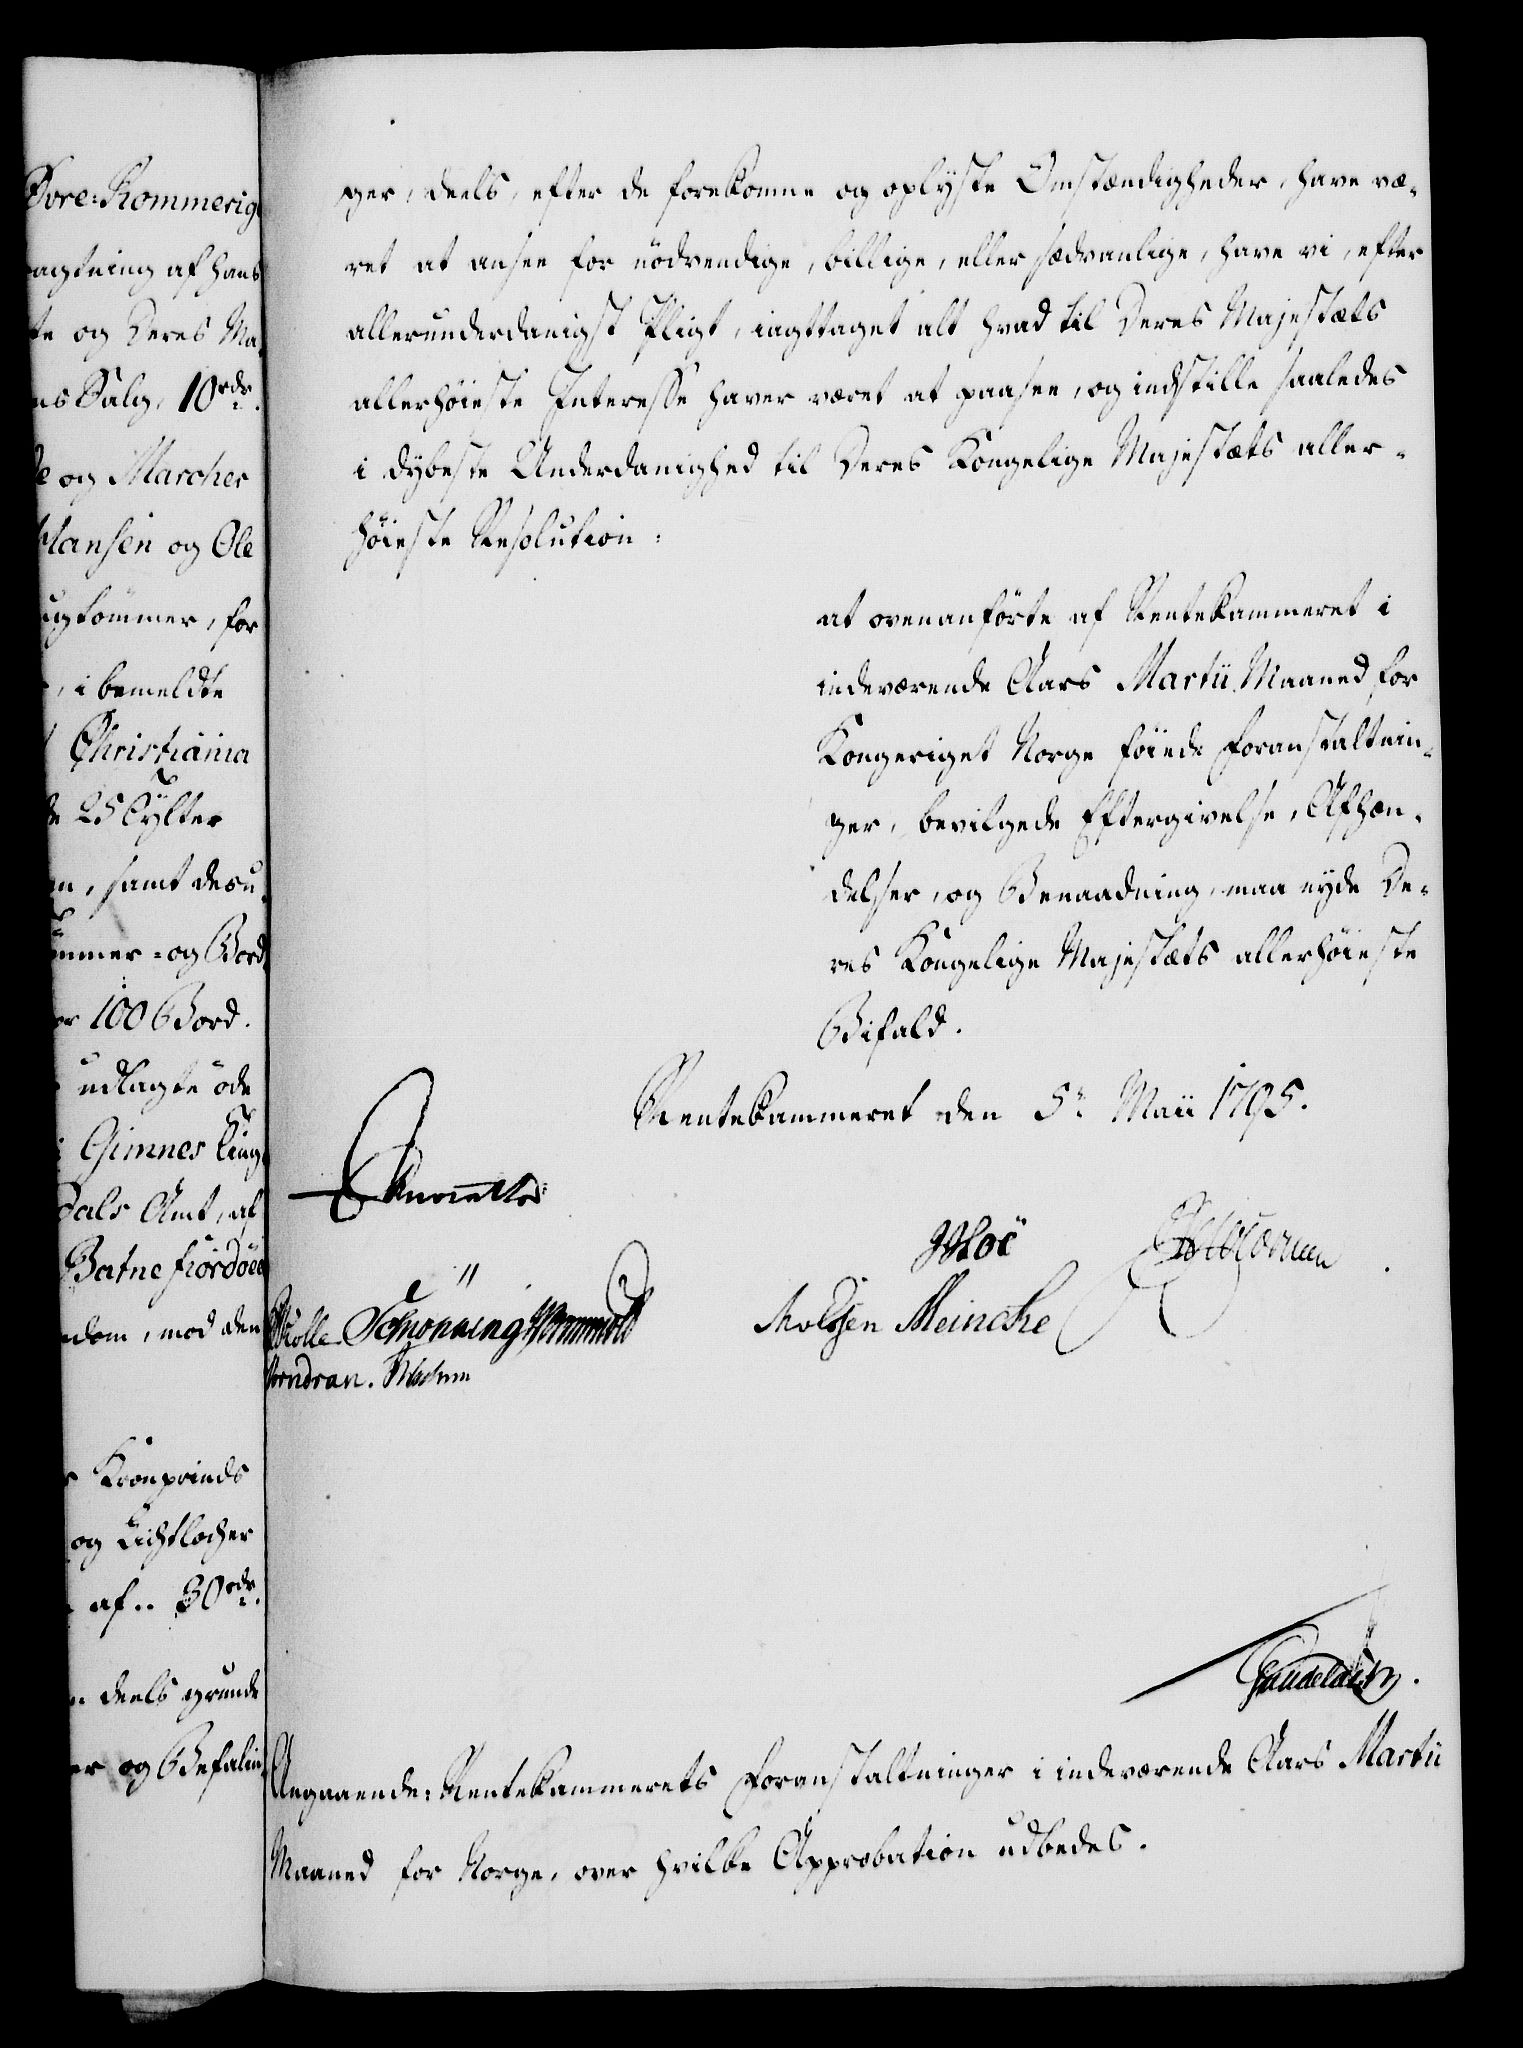 Øvre: Rommerig
agtning af hans
te og Deres Ma-
ns Salg, 10 rdr.
de og Marcher
Hansen og Ole
ugtømmer, for
, i bemeldte
Christiania
de 25 Tylter
en, samt desu-
ømmer- og Bord
or 100 Bord.
udlagte öde
Gimnes Ting
dals Amt, af
Batnefiordöer
ndom, mod den
Kronprinds
og Lichtlocher
af .. 30 rdr.
deels grunde
er og Befalin-
ger, deels, efter de forekomne og oplyste Omstændigheder, have væ-
ret at ansee for nödvendige, billige, eller sædvanlige, have vi, efter
allerunderdanigst Pligt, iagttaget alt hvad til Deres Majestæts
allerhöieste Interesse haver været at paasee, og indstille saaledes
i dybeste Underdanighed til Deres Kongelige Majestæts aller-
höieste Resolution:
at ovenanförte af Rentekammeret i
indeværende Aars Martii Maaned for
Kongeriget Norge föiede Foranstaltnin-
ger, bevilgede Eftergivelse, Afhæn-
delser, og Benaadning, maa nyde De-
res Kongelige Majestæts allerhöieste
Bifald.
Rentekammeret den 5te Maii 1795.
Schönning Wormskiold
Meincke
Vorndran.
Angaaende: Rentekammerets Foranstaltninger i indeværende Aars Martii
Maaned for Norge, over hvilke Approbation udbedes.